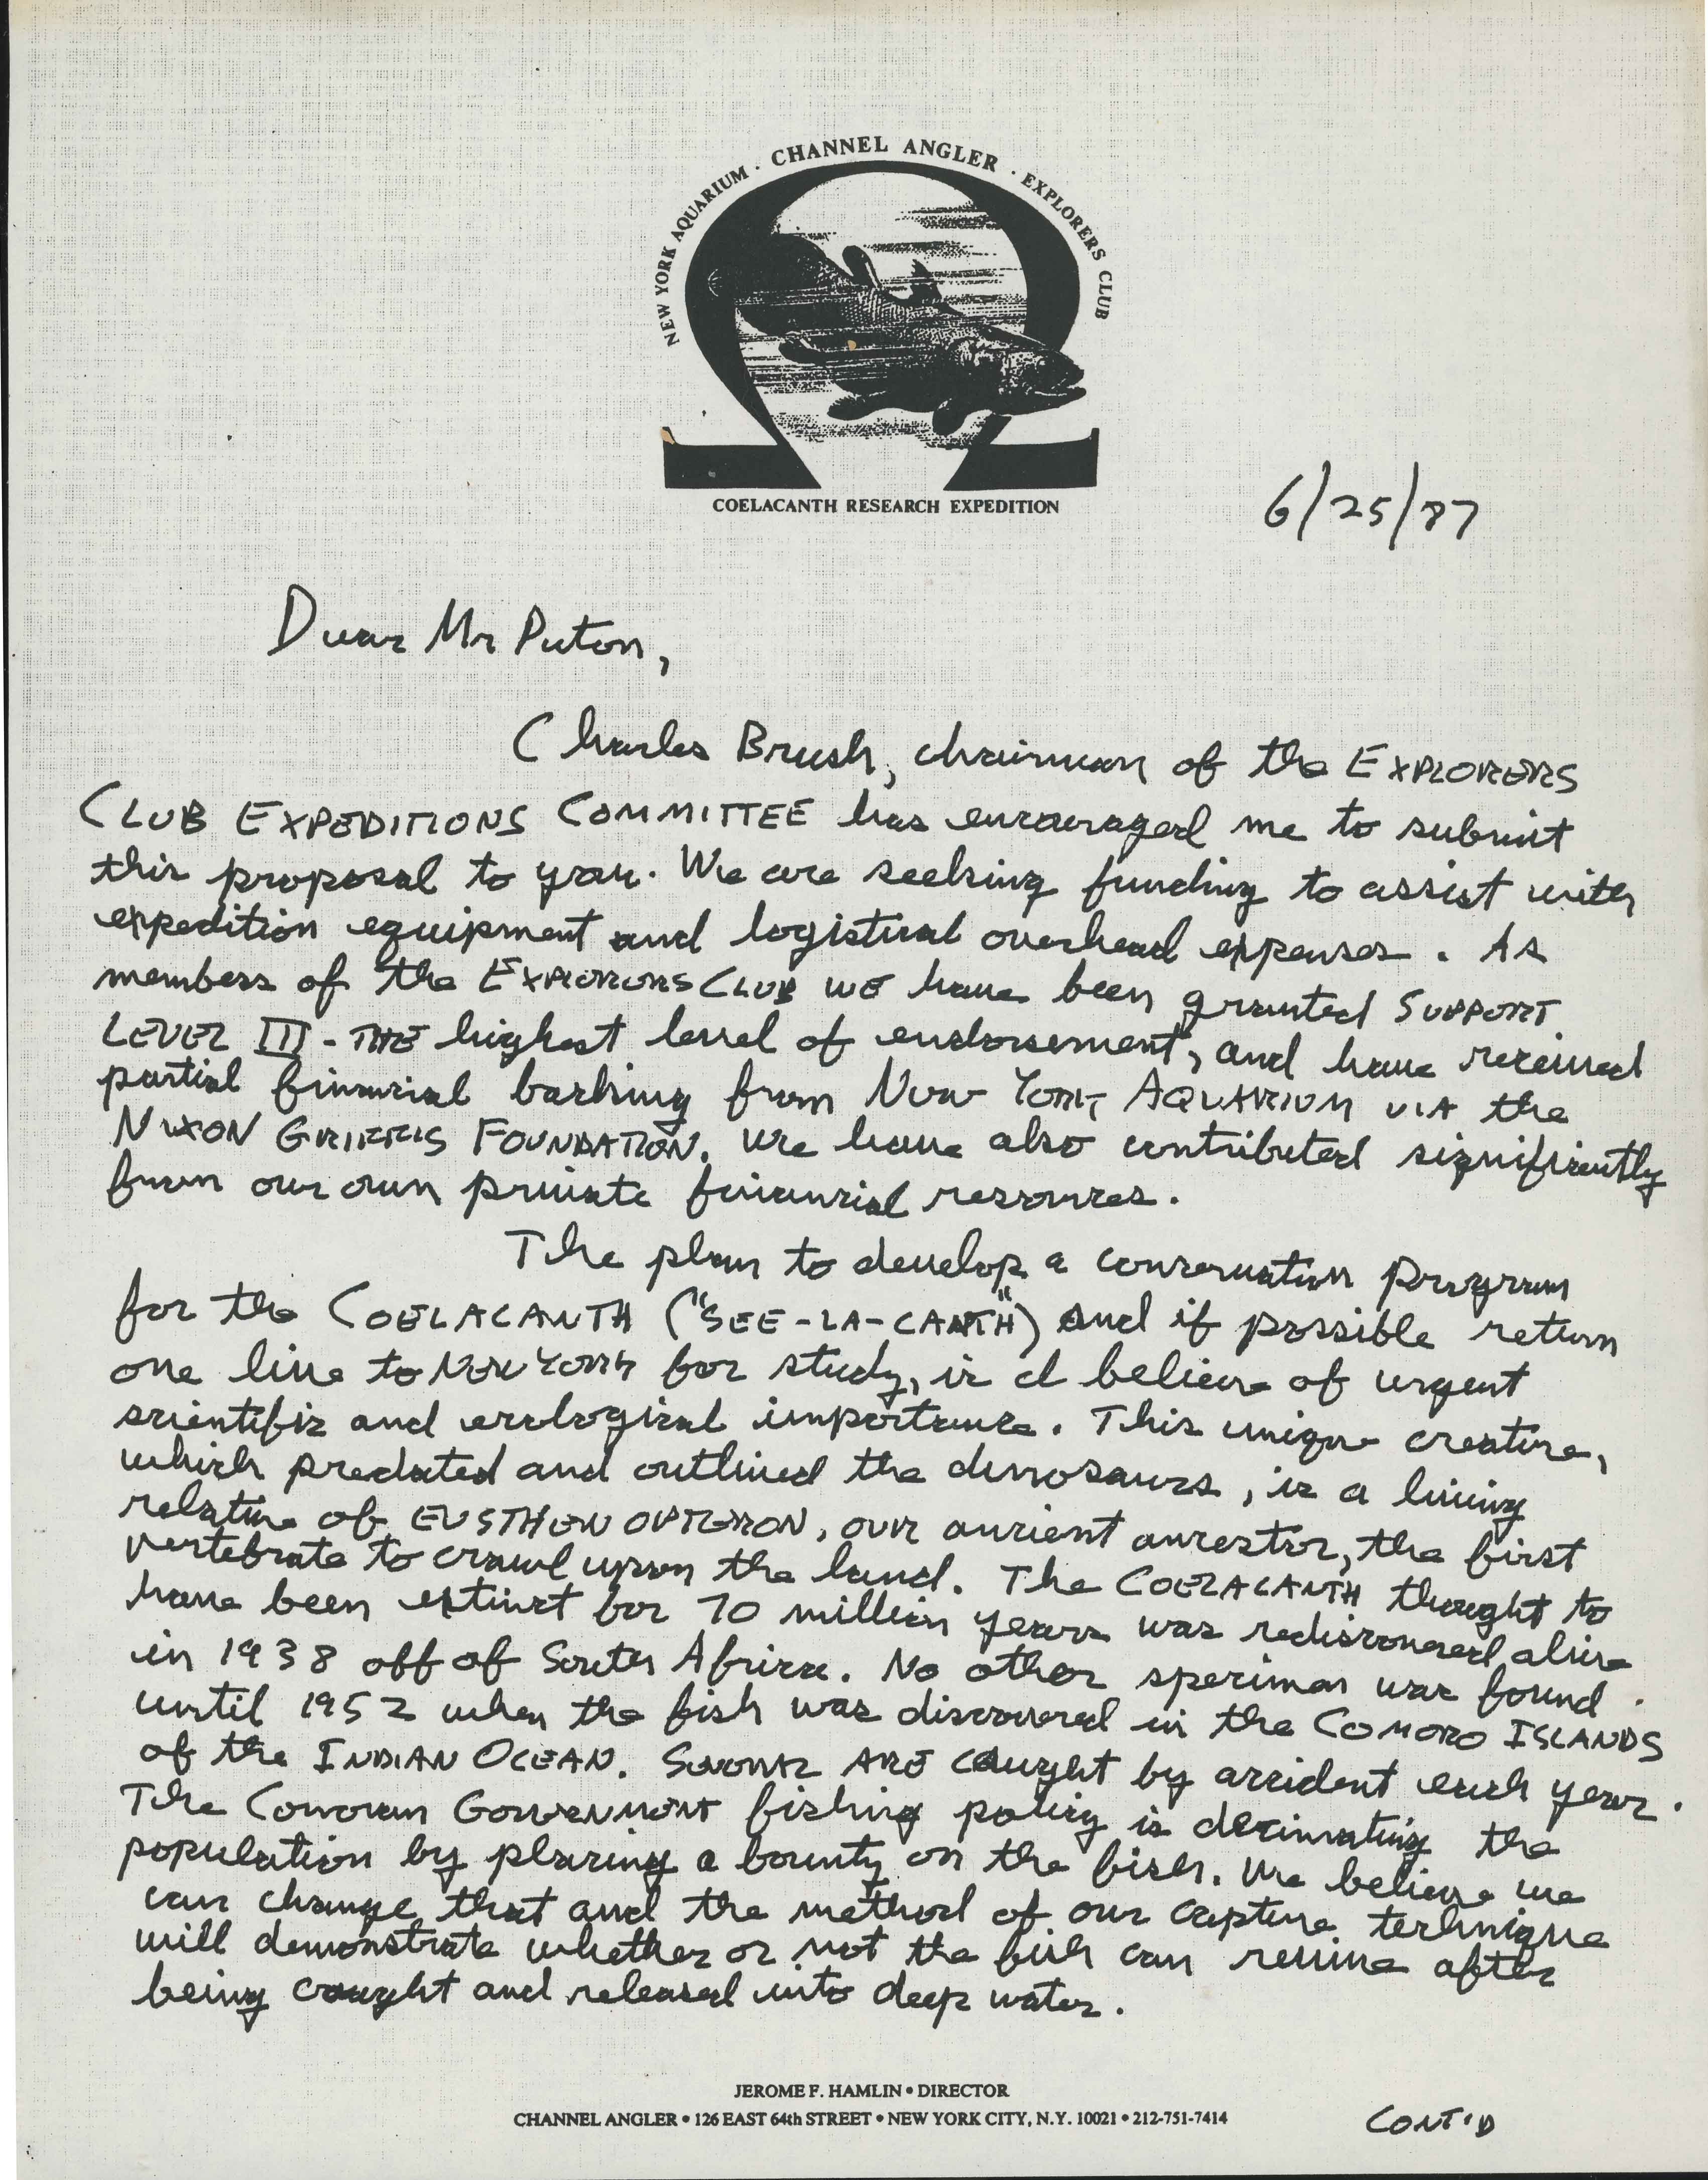 NEW YORK AQUARIUM · CHANNEL ANGLER · EXPLORERS CLUB
COELACANTH RESEARCH EXPEDITION
6/25/87
Dear Mr Peton,
Charles Brush, chairman of the EXPLORERS
CLUB EXPEDITIONS COMMITTEE has encouraged me to submit
this proposal to you. We are seeking funding to assist with
expedition equipment and logistical overhead expenses. As
members of the EXPLORERS CLUB WE have been granted SUPPORT
LEVEL III - THE highest level of endorsement, and have received
partial financial backing from New YORK AQUARIUM VIA the
NIXON GRIFFIS FOUNDATION. We have also contributed significantly
from our own private financial resources.
The plan to develop a conservation program
for the COELACANTH ("SEE-LA-CANTH") and if possible return
one live to NEW YORK for study, is I believe of urgent
scientific and ecological importance. This unique creature,
which predated and outlived the dinosaurs, is a living
relative of EUSTHENOPTERON, our ancient ancestor, the first
vertebrate to crawl upon the land. The COELACANTH thought to
have been extinct for 70 million years was rediscovered alive
in 1938 off of South Africa. No other specimen was found
until 1952 when the fish was discovered in the COMORO ISLANDS
of the INDIAN OCEAN. SEVERAL ARE caught by accident each year.
The Comoran GOVERNMENT fishing policy is decimating the
population by placing a bounty on the fish. We believe we
can change that and the method of our capture technique
will demonstrate whether or not the fish can revive after
being caught and released into deep water.
JEROME F. HAMLIN • DIRECTOR
CHANNEL ANGLER • 126 EAST 64th STREET • NEW YORK CITY, N.Y. 10021 • 212-751-7414
CONT'D